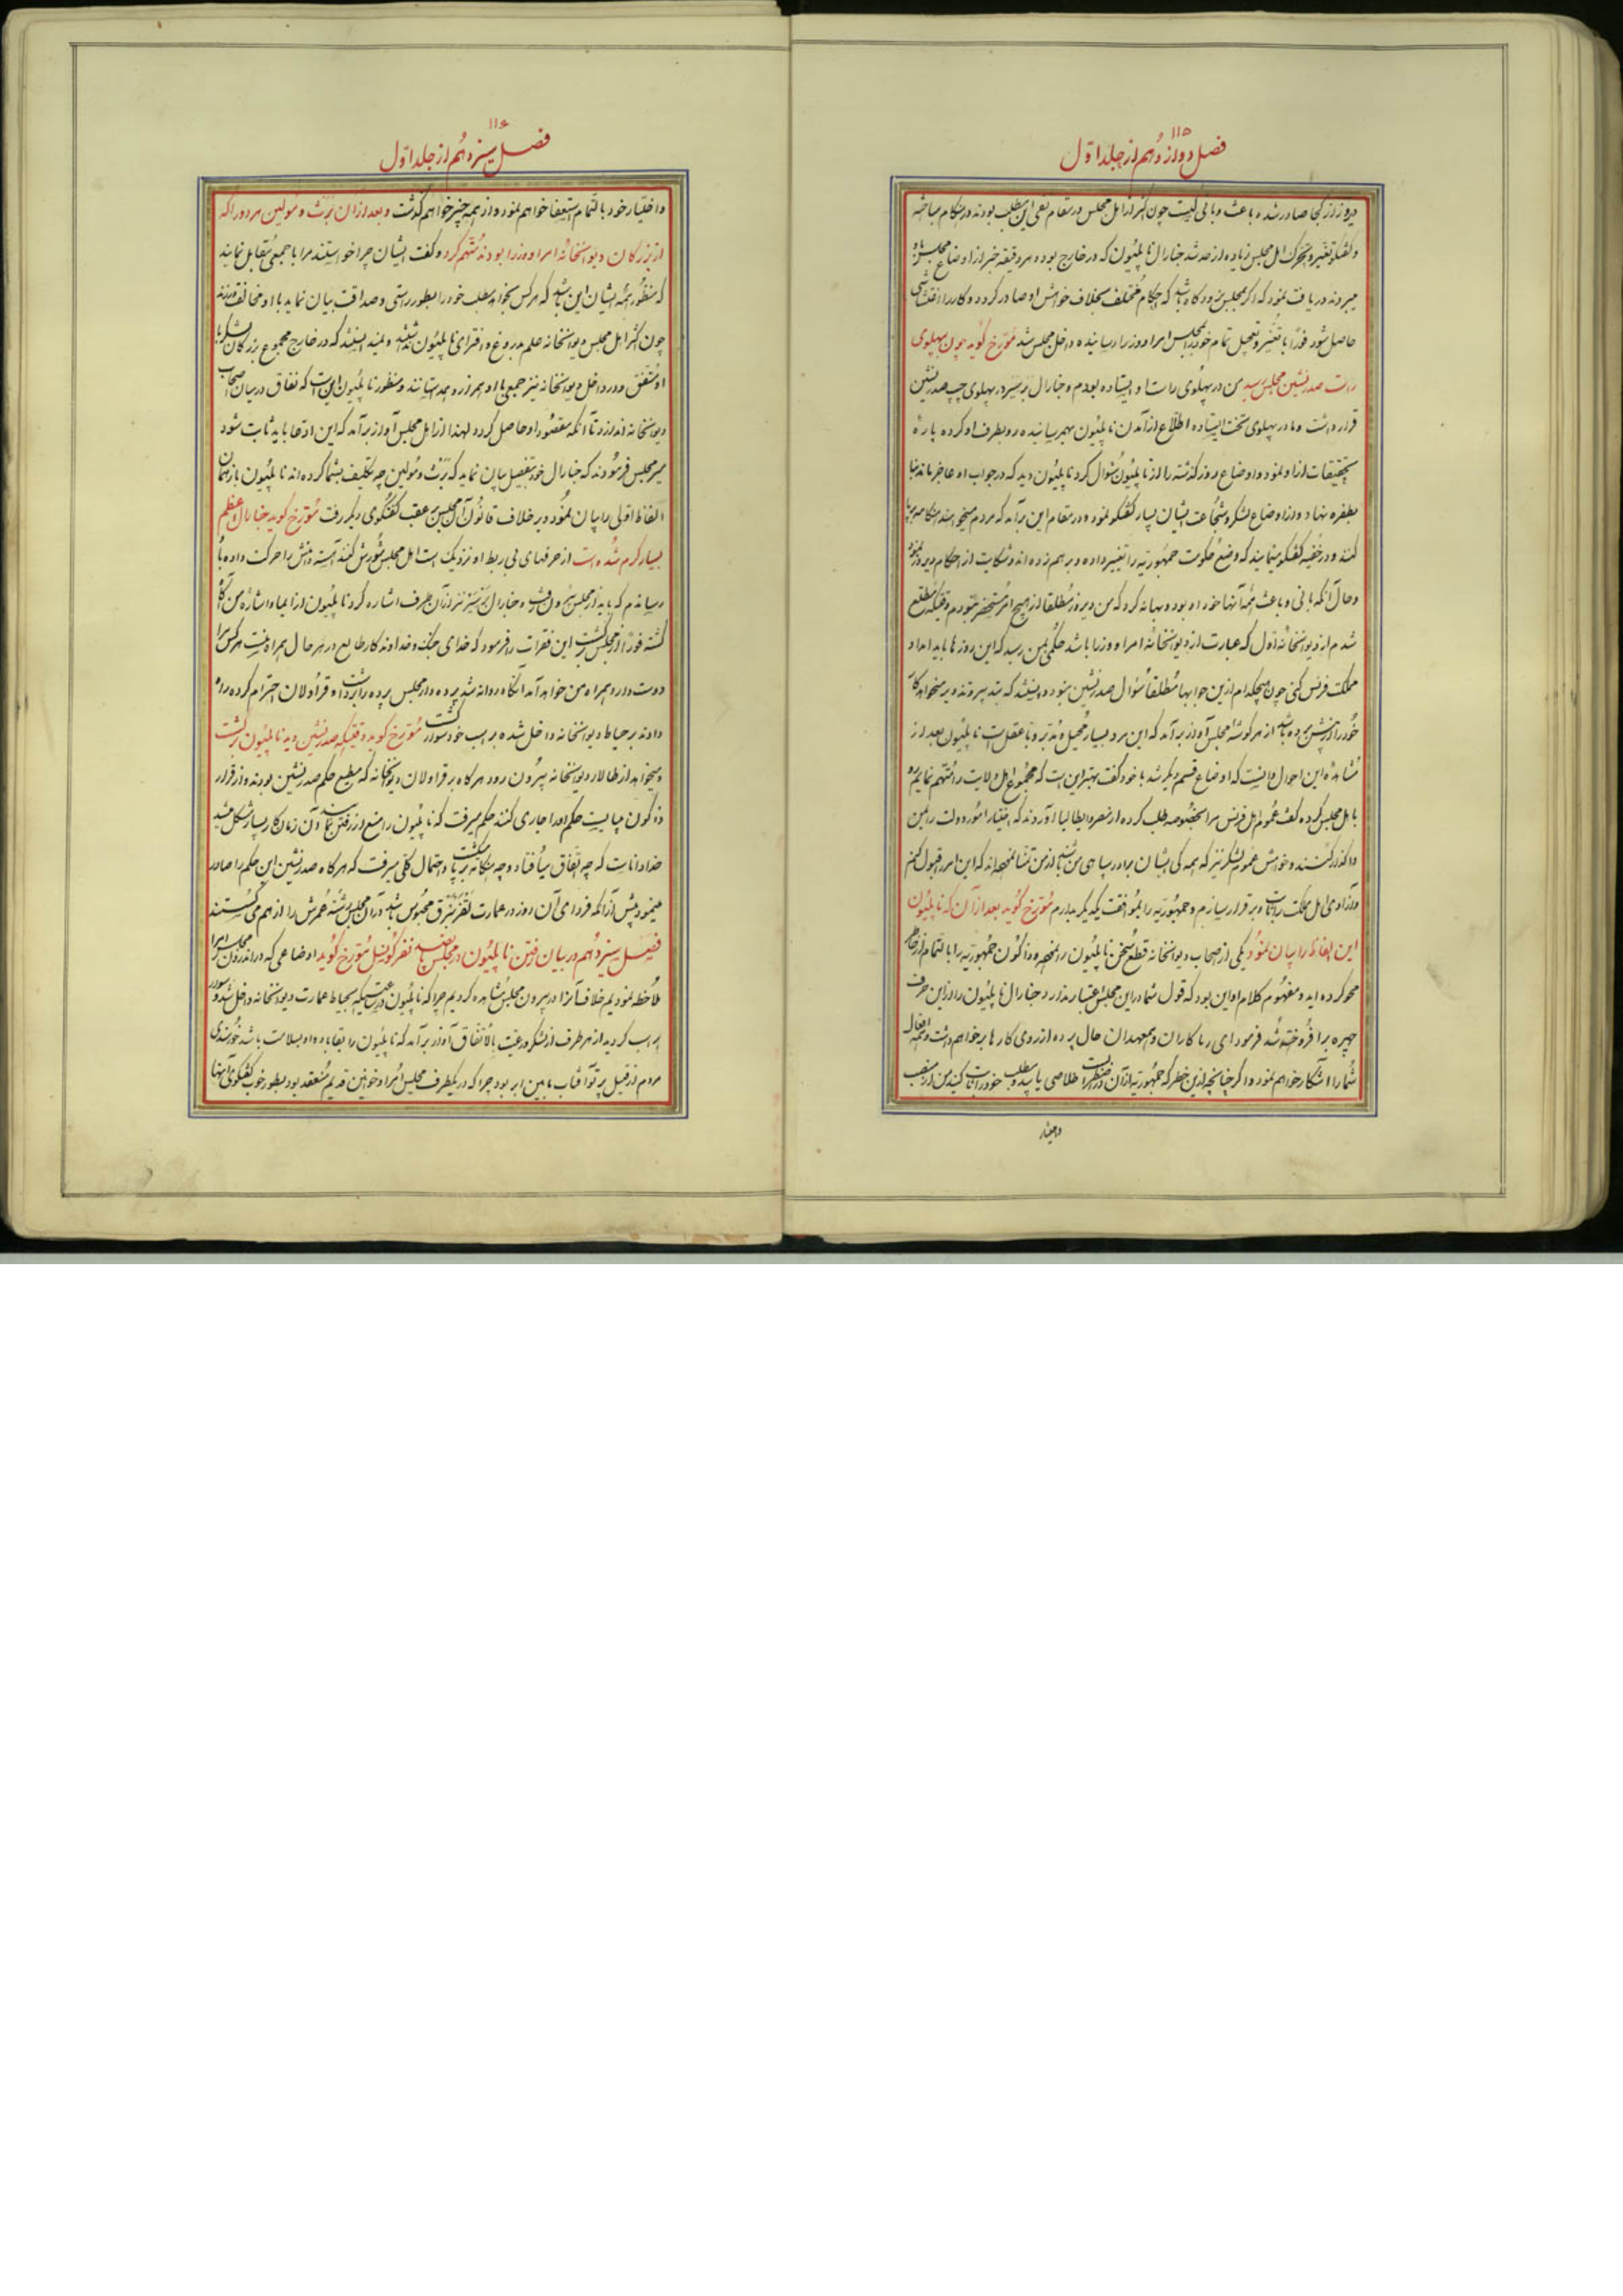 ۱۱۵
فصل دوازدهم از جلد اول
دیروز از کجا صادر شده باعث و بانی کیست چون اکثر از اهل مجلس در مقام نفی این مطلب بودند در هنگام مباحثه
و گفتگو تغیر و تحرک اهل مجلس زیاده از حد شد جنارال ناپلیون که در خارج بود و هر دقیقه خبر از اوضاع مجلس باو
میبردند دریافت نمود که اگر بمجلس نرود گاه باشد که احکام مختلف بخلاف خواهش او صادر گردد و کار را اغتشاشی
حاصل شود فوراً با تغیر و تعجیل تمام خود را بمجلس امرا و وزرا رسانیده داخل مجلس شد مورخ گوید چون پهلوی
راست صدرنشین مجلس رسید من در پهلوی راست او ایستاده بودم و جنارال در پهلوی چپ صدرنشین
قرار داشت و ما در پهلوی تخت ایستاده اطلاع از آمدن ناپلیون بهم رسانیده رو بطرف او کرده پاره
تحقیقات از او نمود و اوضاع روز گذشته را از ناپلیون سؤال کرد ناپلیون دید که در جواب او عاجز ماند بنا
بطفره نهاد و از اوضاع لشکر و شجاعت ایشان بسیار گفتگو نمود و در مقام این برآمد که مردم میخواهند هنگامه برپا
کنند و در خفیه گفتگو مینمایند که وضع حکومت جمهوریه را تغییر داده و بر هم زده اند و شکایت از احکام دیروز نمود
و حال آنکه بانی و باعث همه آنها خود او بود و بهانه کرد که من دیروز مطلقا از هیچ امر مستحضر نبودم وقتیکه مطلع
شدم از دیوانخانه اول که عبارت از دیوانخانه امرا و وزرا باشد حکمی بمن رسید که این روزها باید امداد
مملکت فرنس کنی چون هیچکدام از این جوابها مطلقا سؤال صدرنشین نبود دانستند که بتدبیر و تزویر میخواهد کار
خود را از پیش برده باشد از هر گوشه مجلس آواز برآمد که این مرد بسیار محیل و مدبر و با عقل است ناپلیون بعد از
مشاهده این احوال دانست که اوضاع قسم دیگر شد با خود گفت بهتر این است که مجموع اهل ولایت را متهم نمایم رو
باهل مجلس کرده گفت عموم اهل فرنس مرا بخصوصه طلب کرده از مصر و ایطالیا آوردند که اختیار امور دولت را بمن
واگذار کنند و خواهش عموم لشکر نیز که همه کی ایشان برادر سپاهی من باشند از من تمنا نموده اند که این امر را قبول کنم
و آزادی اهل مملکت را ثابت و برقرار سازم و جمهوریه را بموافقت یکدیگر بدارم مورخ گوید بعد از آن که ناپلیون
این الفاظ را بیان نمود یکی از اصحاب دیوانخانه قطع سخن ناپلیون را نموده و ذاکون جمهوریه را بالتمام از خاطر
محو کرده اید و مفهوم کلام او این بود که قول شما در این مجلس اعتبار ندارد جنارال ناپلیون را از این حرف
چهره برافروخته شد فرمود ای ریاکاران و بدعهدان حال پرده از روی کارها برخواهم داشت و همه افعال
شما را آشکار خواهم نمود و اگر چنانچه از این خطر که جمهوریه از آن در خطر است خلاصی یابید و مطلب خود را ثابت کنید من از منصب
و اختیار
۱۱۶
فصل سیزدهم از جلد اول
و اختیار خود بالتمام استعفا خواهم نمود و از همه چیز خواهم گذشت و بعد از آن و مولین هر دو را که
از بزرگان دیوانخانه امرا و وزرا بودند متهم کرد و گفت ایشان چرا خواستند مرا با جمعی مقابل نمایند
که منظور همه ایشان این باشد که هر کس بخواهد مطلب خود را بطور راستی و صداقت بیان نماید با او مخالفت ورزند
چون اکثر اهل مجلس دیوانخانه علم بدروغ و افترای ناپلیون داشتند و میدانستند که در خارج مجموع بزرگان لشکر با
او متفق و در داخل دیوانخانه نیز جمعی با او همراز و همداستانند و منظور ناپلیون این است که نفاق در میان اصحاب
دیوانخانه اندازد تا آنکه مقصود او حاصل گردد لهذا از اهل مجلس آواز برآمد که این ادعا باید ثابت شود
میر مجلس فرمودند که جنارال خود تفصیل بیان نماید که و مولین چه تکلیف بشما کرده اند ناپلیون باز همان
الفاظ اولی را بیان نمود و بر خلاف قانون آن مجلس بر عقب گفتگوی دیگر رفت مورخ گوید جنارال اعظم
بسیار گرم شده است از حرفهای بی ربط او نزدیک است اهل مجلس شورش کنند آهسته دامنش را حرکت داده باو
رسانیدم که باید از مجلس بیرون رفت و جنارال نیز از آن طرف اشاره کرد ناپلیون از ایما و اشاره من آگاه
گشته فوراً از مجلس برگشت این فقرات را فرمود که خدای جنگ و خداوند کار طالع در هر حال همراه منست هر کس مرا
دوست دارد همراه من خواهد آمد آنگاه روانه شد پرده دار مجلس پرده را برداشت و قراولان احترام کرده راه
دادند بر حیاط دیوانخانه داخل شده بر اسب خود سوار گشت مورخ گوید وقتیکه صدرنشین دید ناپلیون برگشت
و میخواهد از طالار دیوانخانه بیرون رود هرگاه بر قراولان دیوانخانه که مطیع حکم صدرنشین بودند و از قرار
ذاکون میبایست حکم او را جاری کنند حکم میرفت که ناپلیون را منع از رفتن نمایند آن زمان کار بسیار مشکل میشد
خدا داناست که چه اتفاق میافتاد و چه هنگامه برپا میگشت و احتمال کلی میرفت که هرگاه صدرنشین این حکم را صادر
مینمود پیش از آنکه فردای آن روز در عمارت محبوس باشد در آن مجلس رشته عمرش را از هم می گسستند
فصل سیزدهم در بیان رفتن ناپلیون در مجلس پانصد نفر کونسل مورخ گوید اوضاعی که در اندرون مجلس امرا
ملاحظه نمودیم خلاف آنرا در بیرون مجلس مشاهده کردیم چرا که ناپلیون در ساعتیکه بحیاط عمارت دیوانخانه داخل شد و سوار
بر اسب گردید از هر طرف از لشکر و رعیت بالاتفاق آواز برآمد که ناپلیون را بقا باد و او بسلامت باشد خورسندی
مردم از قبیل پرتو آفتاب مابین ابر بود چرا که در یکطرف مجلس امرا و خوانین قدیم منعقد بود بطور خوب گفتگوی آنها